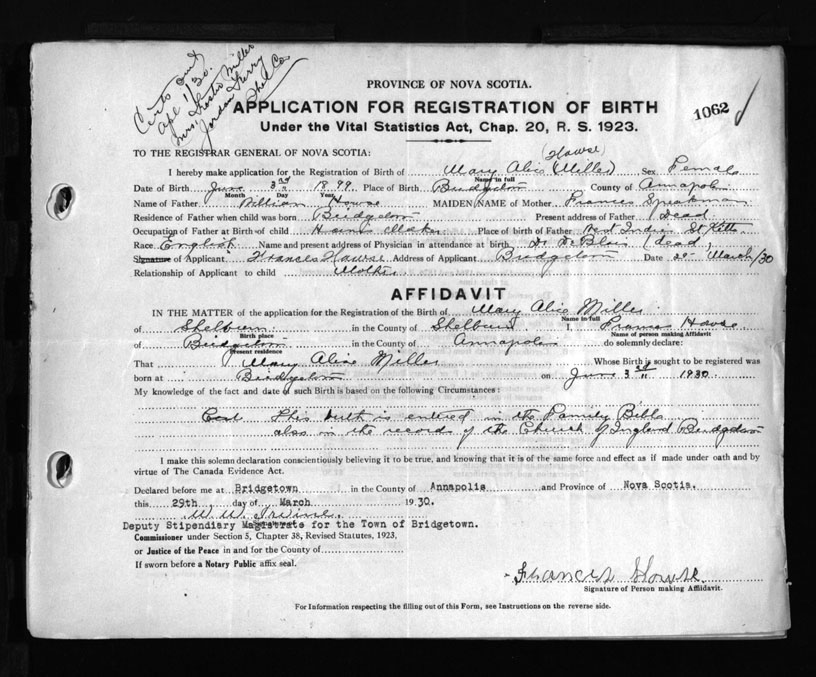 Certs out
Apl 1/30.
Mrs. Miller
Jordan Ferry
Shel Co
PROVINCE OF NOVA SCOTIA.
APPLICATION FOR REGISTRATION OF BIRTH
1062
Under the Vital Statistics Act, Chap. 20, R. S. 1923.
TO THE REGISTRAR GENERAL OF NOVA SCOTIA:
(Howse)
I hereby make application for the Registration of Birth of Mary Alice (Miller) Sex Female
Name in full
Date of Birth June 3rd 1899 Place of Birth Bridgetown County of Annapolis
Month Day Year
Name of Father William Howse MAIDEN NAME of Mother Frances Speakman
Residence of Father when child was born Bridgetown Present address of Father Dead
Occupation of Father at Birth of child Harness Maker Place of birth of Father West Indies St Kitts
Race English Name and present address of Physician in attendance at birth Dr DeBlois (dead)
Signature of Applicant Frances Howse Address of Applicant Bridgetown Date March/30
Relationship of Applicant to child Mother
AFFIDAVIT
IN THE MATTER of the application for the Registration of the Birth of Mary Alice Miller
Name in full
of Shelburn in the County of Shelburn I, Frances Howse
Birth place Name of person making Affidavit
of Bridgetown in the County of Annapolis do solemnly declare:
Present residence
That Mary Alice Miller Whose Birth is sought to be registered was
born at Bridgetown on June 3rd 1930
My knowledge of the fact and date of such Birth is based on the following Circumstances:
This birth is entred in the Family Bible
also in the records of the Church of England Bridgetown
I make this solemn declaration conscientiously believing it to be true, and knowing that it is of the same force and effect as if made under oath and by
virtue of The Canada Evidence Act.
Declared before me at Bridgetown in the County of Annapolis and Province of Nova Scotia.
this 29th, day of March 1930.
Deputy Stipendiary Magistrate for the Town of Bridgetown.
Commissioner under Section 5, Chapter 38, Revised Statutes, 1923,
or Justice of the Peace in and for the County of
If sworn before a Notary Public affix seal.
Frances Howse
Signature of Person making Affidavit.
For Information respecting the filling out of this Form, see Instructions on the reverse side.